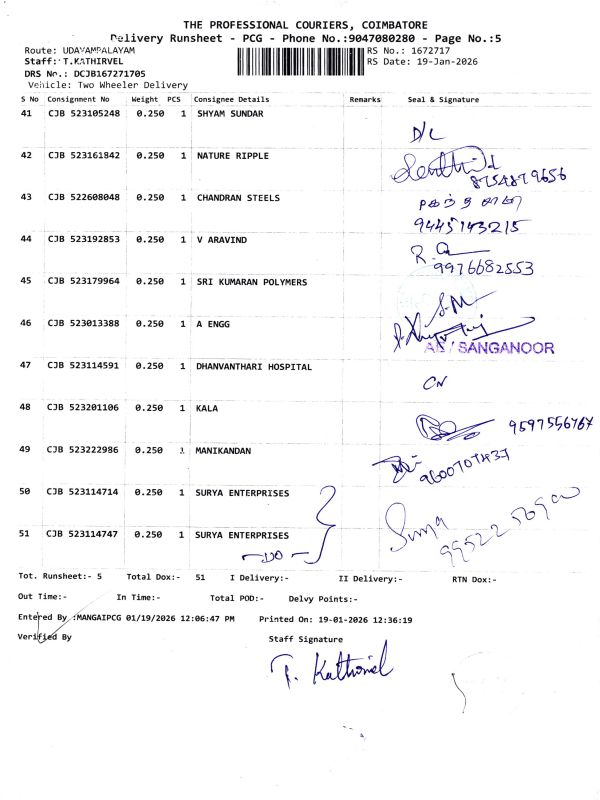 THE PROFESSIONAL COURIERS, COIMBATORE
Delivery Runsheet - PCG - Phone No.:9047080280 - Page No.:5
Route: UDAYAMPALAYAM
RS No.: 1672717
Staff: T.KATHIRVEL
RS Date: 19-Jan-2026
DRS No.: DCJB167271705
Vehicle: Two Wheeler Delivery
S No Consignment No Weight PCS Consignee Details Remarks Seal & Signature
41 CJB 523105248 0.250 1 SHYAM SUNDAR D/L
42 CJB 523161842 0.250 1 NATURE RIPPLE 8754879656
43 CJB 522608048 0.250 1 CHANDRAN STEELS
9445143215
44 CJB 523192853 0.250 1 V ARAVIND
9976682553
45 CJB 523179964 0.250 1 SRI KUMARAN POLYMERS
46 CJB 523013388 0.250 1 A ENGG
SANGANOOR
47 CJB 523114591 0.250 1 DHANVANTHARI HOSPITAL CN
48 CJB 523201106 0.250 1 KALA 9597556767
49 CJB 523222986 0.250 1 MANIKANDAN
50 CJB 523114714 0.250 1 SURYA ENTERPRISES Surya
51 CJB 523114747 0.250 1 SURYA ENTERPRISES
-DO-
Tot. Runsheet:- 5 Total Dox:- 51 I Delivery:- II Delivery:- RTN Dox:-
Out Time:- In Time:- Total POD:- Delvy Points:-
Entered By :MANGAIPCG 01/19/2026 12:06:47 PM Printed On: 19-01-2026 12:36:19
Verified By Staff Signature
T. Kathirvel